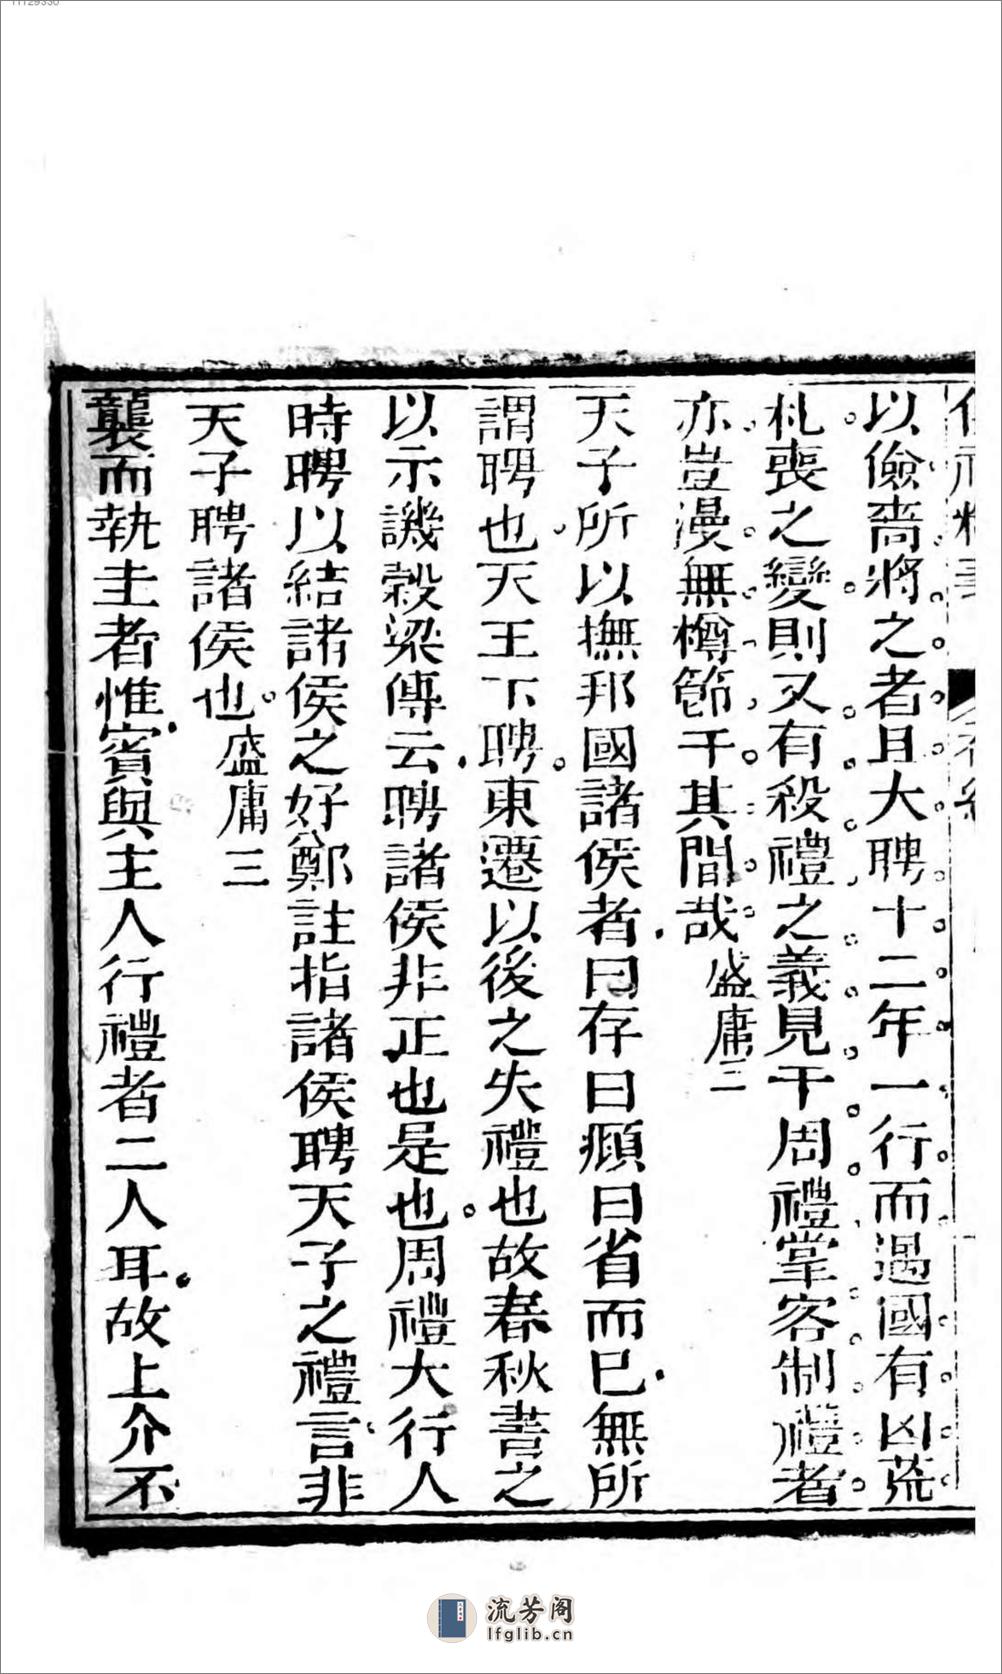 以儉嗇將之者且大聘十二年一行而遇國有凶荒
札喪之變則又有殺禮之義見于周禮掌客制禮者
亦豈漫無樽節于其間哉盛庸三
天子所以撫邦國諸侯者曰存曰頫曰省而已無所
謂聘也天王下聘東遷以後之失禮也故春秋書之
以示譏穀梁傳云聘諸侯非正也是也周禮大行人
時聘以結諸侯之好鄭註指諸侯聘天子之禮言非
天子聘諸侯也盛庸三
襲而執圭者惟賓與主人行禮者二人耳故上介不
流芳阁
lfglib.cn